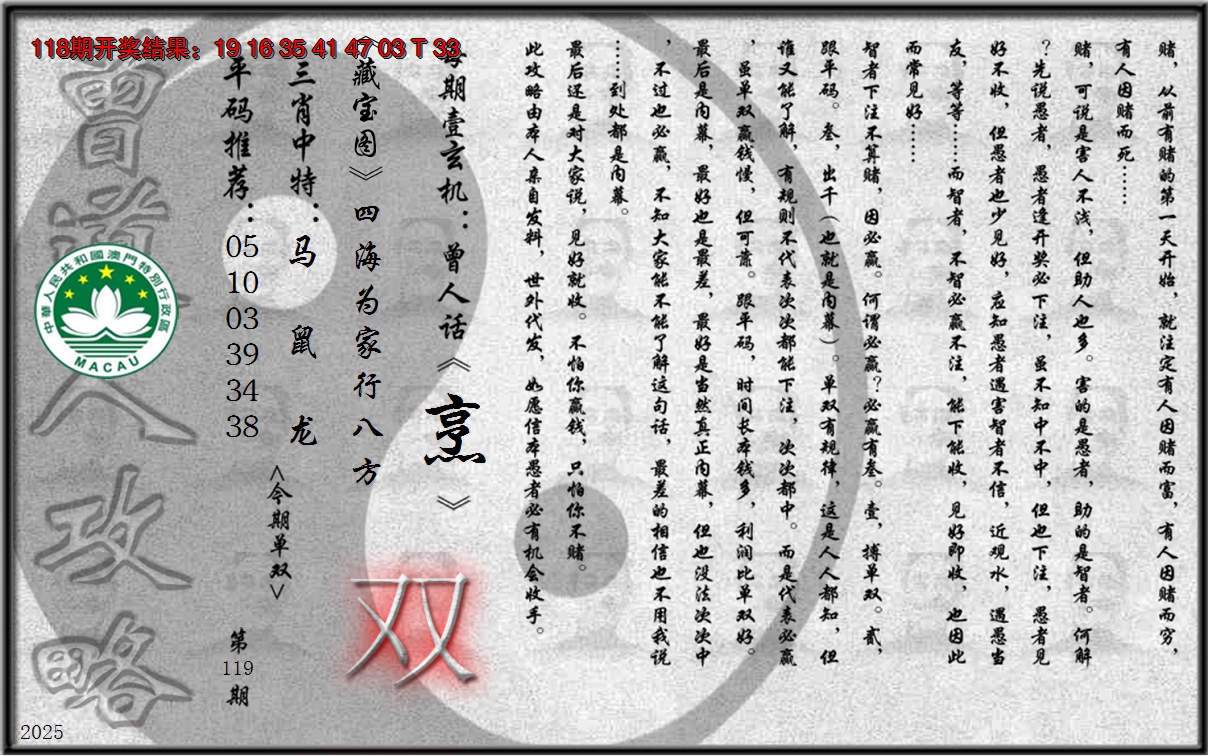 118期开奖结果：19 16 35 41 47 03 T 33
赌，从前有赌的第一天开始，就注定有人因赌而富，有人因赌而穷，
有人因赌而死……
赌，可说是害人不浅，但助人也多。害的是愚者，助的是智者。何解
？先说愚者，愚者逢开奖必下注，虽不知中不中，但也下注，愚者见
好不收，但愚者也少见好，应知愚者遇害智者不信，近观水，遇愚当
友，等等……而智者，不智必赢不注，能下能收，见好即收，也因此
而常见好……
智者下注不算赌，因必赢。何谓必赢？必赢有叁。壹，搏单双。贰，
跟平码。叁，出千（也就是内幕）。单双有规律，这是人人都知，但
谁又能了解，有规则不代表次次都能下注，次次都中。而是代表必赢
，虽单双赢钱慢，但可靠。跟平码，时间长本钱多，利润比单双好。
最后是内幕，最好也是最差，最好是当然真正内幕，但也没法次次中
，不过也必赢，不知大家能不能了解这句话，最差的相信也不用我说
……到处都是内幕。
最后还是对大家说，见好就收。不怕你赢钱，只怕你不赌。
此攻略由本人亲自发料，世外代发，如愿信本愚者必有机会收手。
每期壹玄机：曾人话《烹》
《藏宝图》四海为家行八方
双
三肖中特：马 鼠 龙
<今期单双>
平码推荐：
05
10
03
39
34
38
第
119
期
曾道人攻略
中華人民共和國澳門特別行政區
MACAU
2025